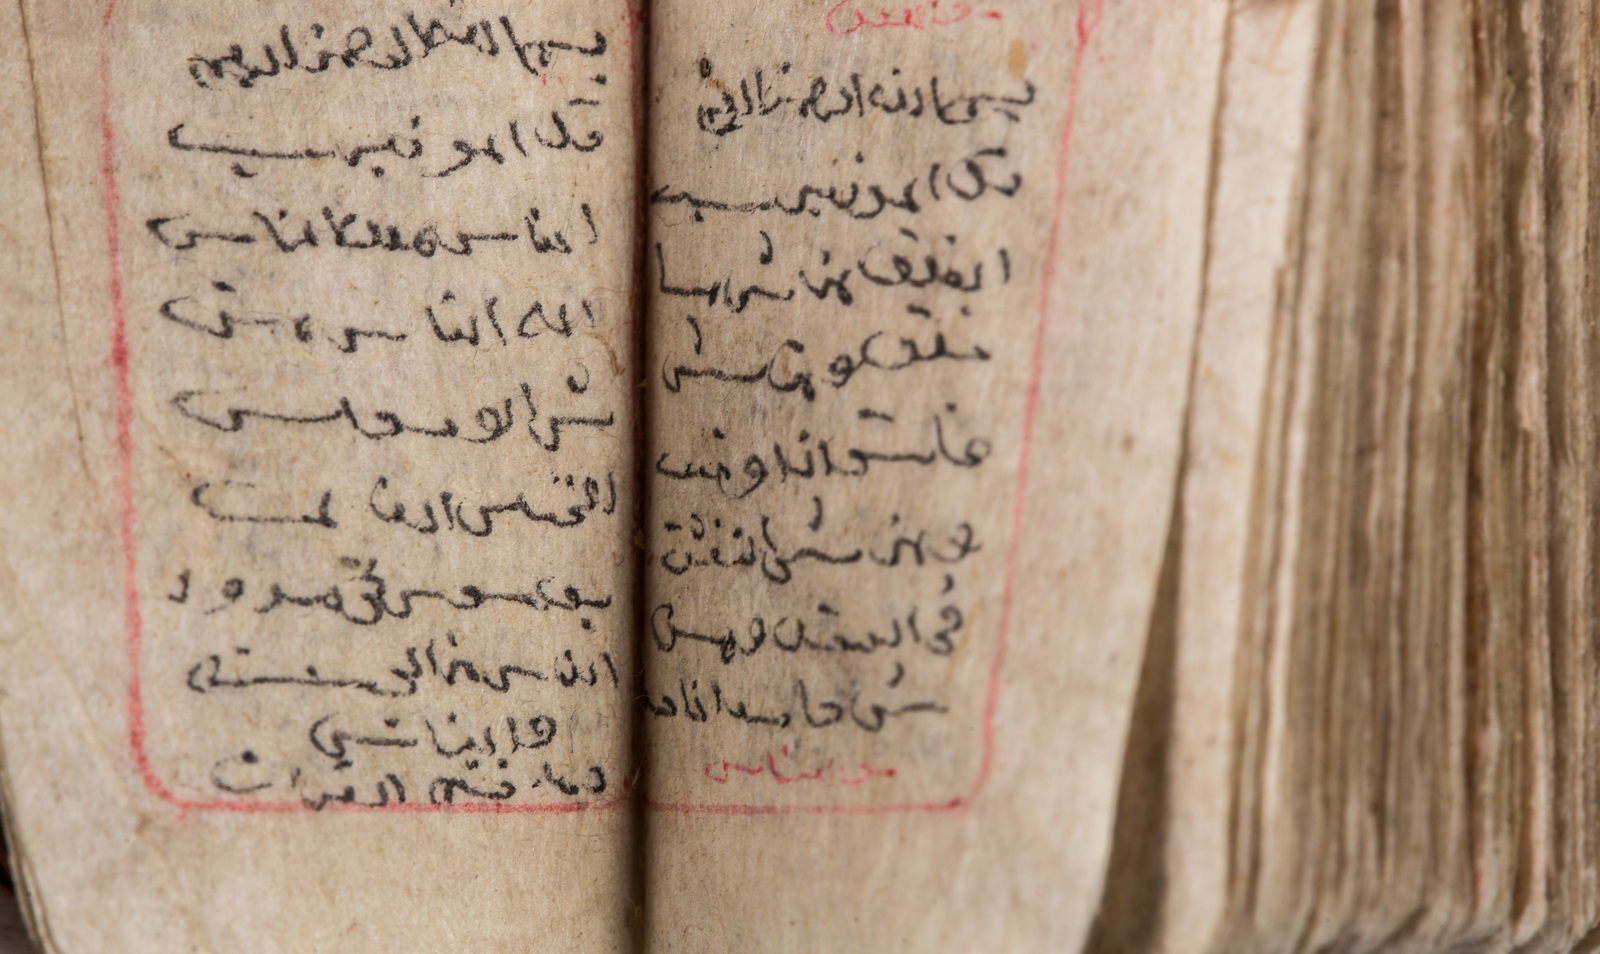 بسم الله الرحمن الرحيم
قل اعوذ برب
الفلق من شر ما
خلق ومن شر
غاسق اذا وقب
ومن شر النفثت
في العقد ومن
شر حاسد اذا حسد
الناس
بسم الله الرحمن الرحيم
قل اعوذ برب
الناس ملك الناس
اله الناس من
شر الوسواس
الخناس الذي
يوسوس في صدور
الناس من الجنة
والناس
ختم القران